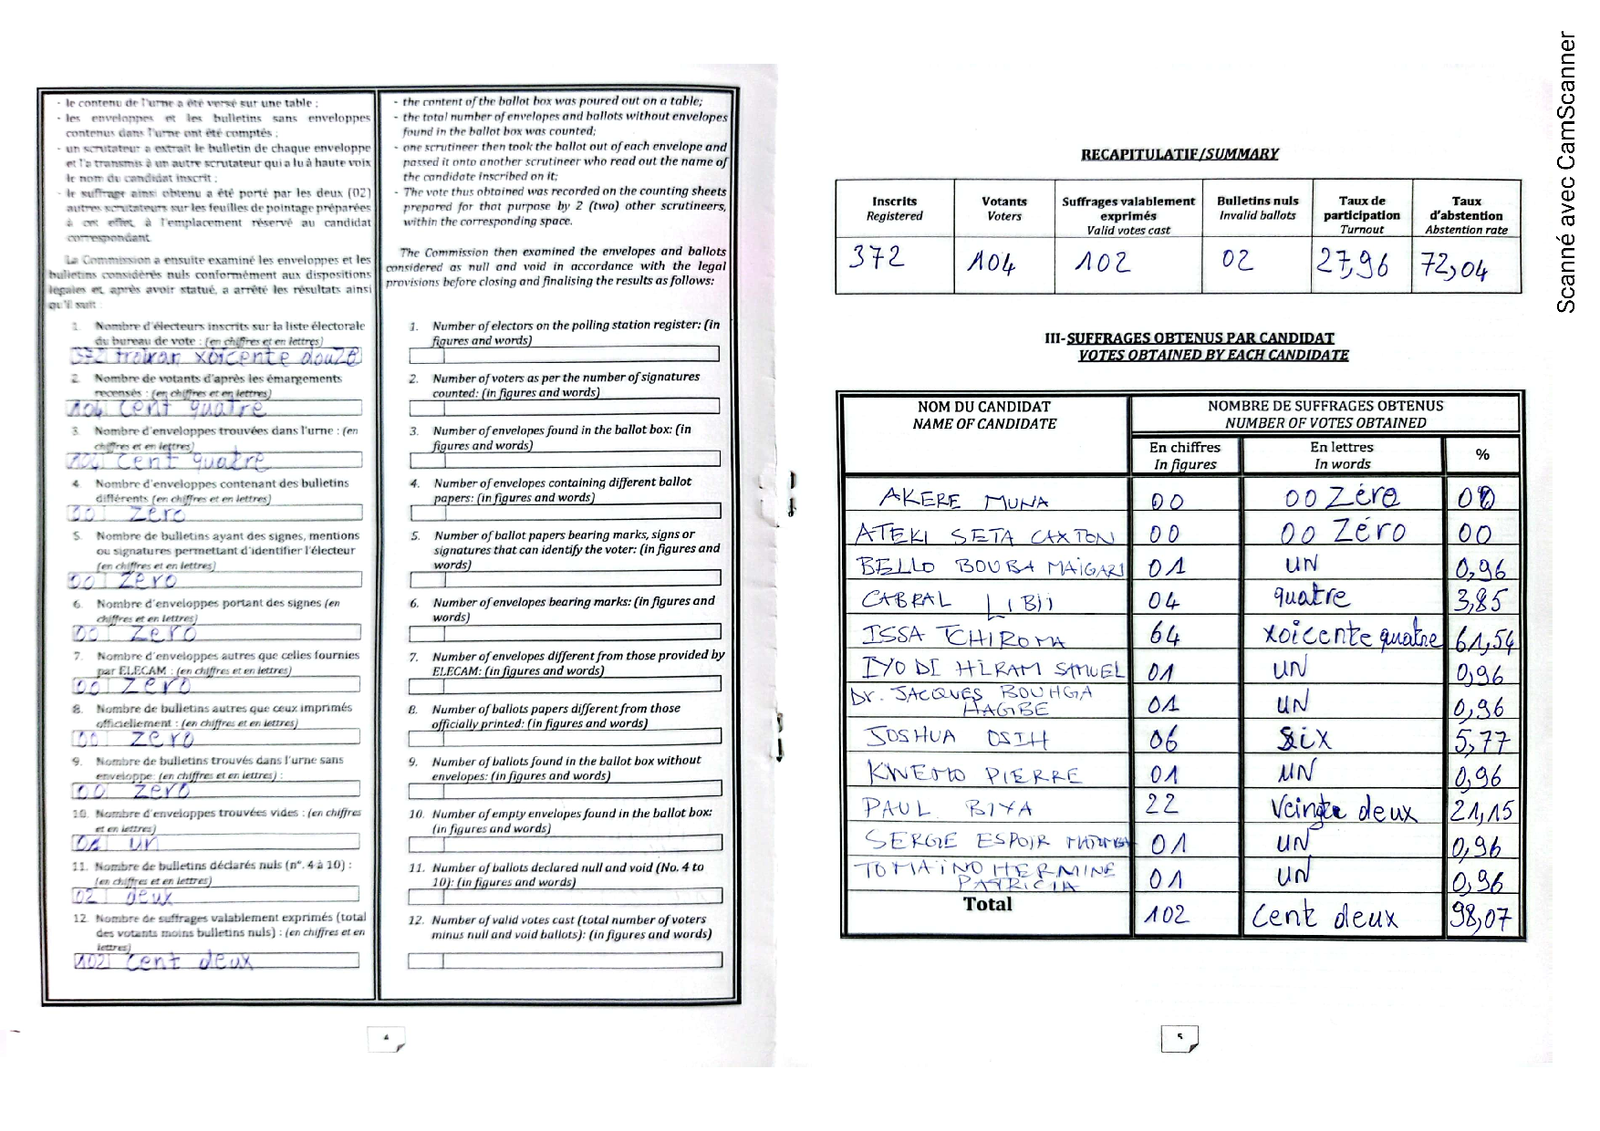 - le contenu de l'urne a été versé sur une table ;
- les enveloppes et les bulletins sans enveloppes
contenus dans l'urne ont été comptés ;
- un scrutateur a extrait le bulletin de chaque enveloppe
et l'a transmis à un autre scrutateur qui a lu à haute voix
le nom du candidat inscrit ;
- le suffrage ainsi obtenu a été porté par les deux (02)
autres scrutateurs sur les feuilles de pointage préparées
à cet effet, à l'emplacement réservé au candidat
correspondant.
La Commission a ensuite examiné les enveloppes et les
bulletins considérés nuls conformément aux dispositions
légales et, après avoir statué, a arrêté les résultats ainsi
qu'il suit :
1. Nombre d'électeurs inscrits sur la liste électorale
du bureau de vote : (en chiffres et en lettres)
372 xoicente douze
2. Nombre de votants d'après les émargements
recensés : (en chiffres et en lettres)
104 cent quatre
3. Nombre d'enveloppes trouvées dans l'urne : (en
chiffres et en lettres)
104 cent quatre
4. Nombre d'enveloppes contenant des bulletins
différents (en chiffres et en lettres)
00 zéro
5. Nombre de bulletins ayant des signes, mentions
ou signatures permettant d'identifier l'électeur
(en chiffres et en lettres)
00 zéro
6. Nombre d'enveloppes portant des signes (en
chiffres et en lettres)
00 zero
7. Nombre d'enveloppes autres que celles fournies
par ELECAM : (en chiffres et en lettres)
00 zero
8. Nombre de bulletins autres que ceux imprimés
officiellement : (en chiffres et en lettres)
00 zero
9. Nombre de bulletins trouvés dans l'urne sans
enveloppe: (en chiffres et en lettres) :
00 zéro
10. Nombre d'enveloppes trouvées vides : (en chiffres
et en lettres)
01 un
11. Nombre de bulletins déclarés nuls (n°. 4 à 10) :
(en chiffres et en lettres)
02 deux
12. Nombre de suffrages valablement exprimés (total
des votants moins bulletins nuls) : (en chiffres et en
lettres)
102 cent deux
- the content of the ballot box was poured out on a table;
- the total number of envelopes and ballots without envelopes
found in the ballot box was counted;
- one scrutineer then took the ballot out of each envelope and
passed it onto another scrutineer who read out the name of
the candidate inscribed on it;
- The vote thus obtained was recorded on the counting sheets
prepared for that purpose by 2 (two) other scrutineers,
within the corresponding space.
The Commission then examined the envelopes and ballots
considered as null and void in accordance with the legal
provisions before closing and finalising the results as follows:
1. Number of electors on the polling station register: (in
figures and words)
2. Number of voters as per the number of signatures
counted: (in figures and words)
3. Number of envelopes found in the ballot box: (in
figures and words)
4. Number of envelopes containing different ballot
papers: (in figures and words)
5. Number of ballot papers bearing marks, signs or
signatures that can identify the voter: (in figures and
words)
6. Number of envelopes bearing marks: (in figures and
words)
7. Number of envelopes different from those provided by
ELECAM: (in figures and words)
8. Number of ballots papers different from those
officially printed: (in figures and words)
9. Number of ballots found in the ballot box without
envelopes: (in figures and words)
10. Number of empty envelopes found in the ballot box:
(in figures and words)
11. Number of ballots declared null and void (No. 4 to
10): (in figures and words)
12. Number of valid votes cast (total number of voters
minus null and void ballots): (in figures and words)
4
RECAPITULATIF/SUMMARY
Inscrits Registered | Votants Voters | Suffrages valablement exprimés Valid votes cast | Bulletins nuls Invalid ballots | Taux de participation Turnout | Taux d'abstention Abstention rate
372 | 104 | 102 | 02 | 27,96 | 72,04
III- SUFFRAGES OBTENUS PAR CANDIDAT
VOTES OBTAINED BY EACH CANDIDATE
NOM DU CANDIDAT NAME OF CANDIDATE | NOMBRE DE SUFFRAGES OBTENUS NUMBER OF VOTES OBTAINED
En chiffres In figures | En lettres In words | %
AKERE MUNA 00 00 Zéro 00
ATEKI SETA CAXTON 00 00 Zéro 00
BELLO BOUBA MAIGARI 01 UN 0,96
CABRAL LIBII 04 quatre 3,85
ISSA TCHIROMA 64 xoicente quatre 61,54
IYODI HIRAM SAMUEL 01 UN 0,96
Dr. JACQUES BOUHGA HAGBE 01 UN 0,96
JOSHUA OSIH 06 six 5,77
KWEMO PIERRE 01 UN 0,96
PAUL BIYA 22 Veingte deux 21,15
SERGE ESPOIR 01 UN 0,96
TOMAINO HERMINE PATRICIA 01 UN 0,96
Total 102 Cent deux 98,07
5
Scanné avec CamScanner